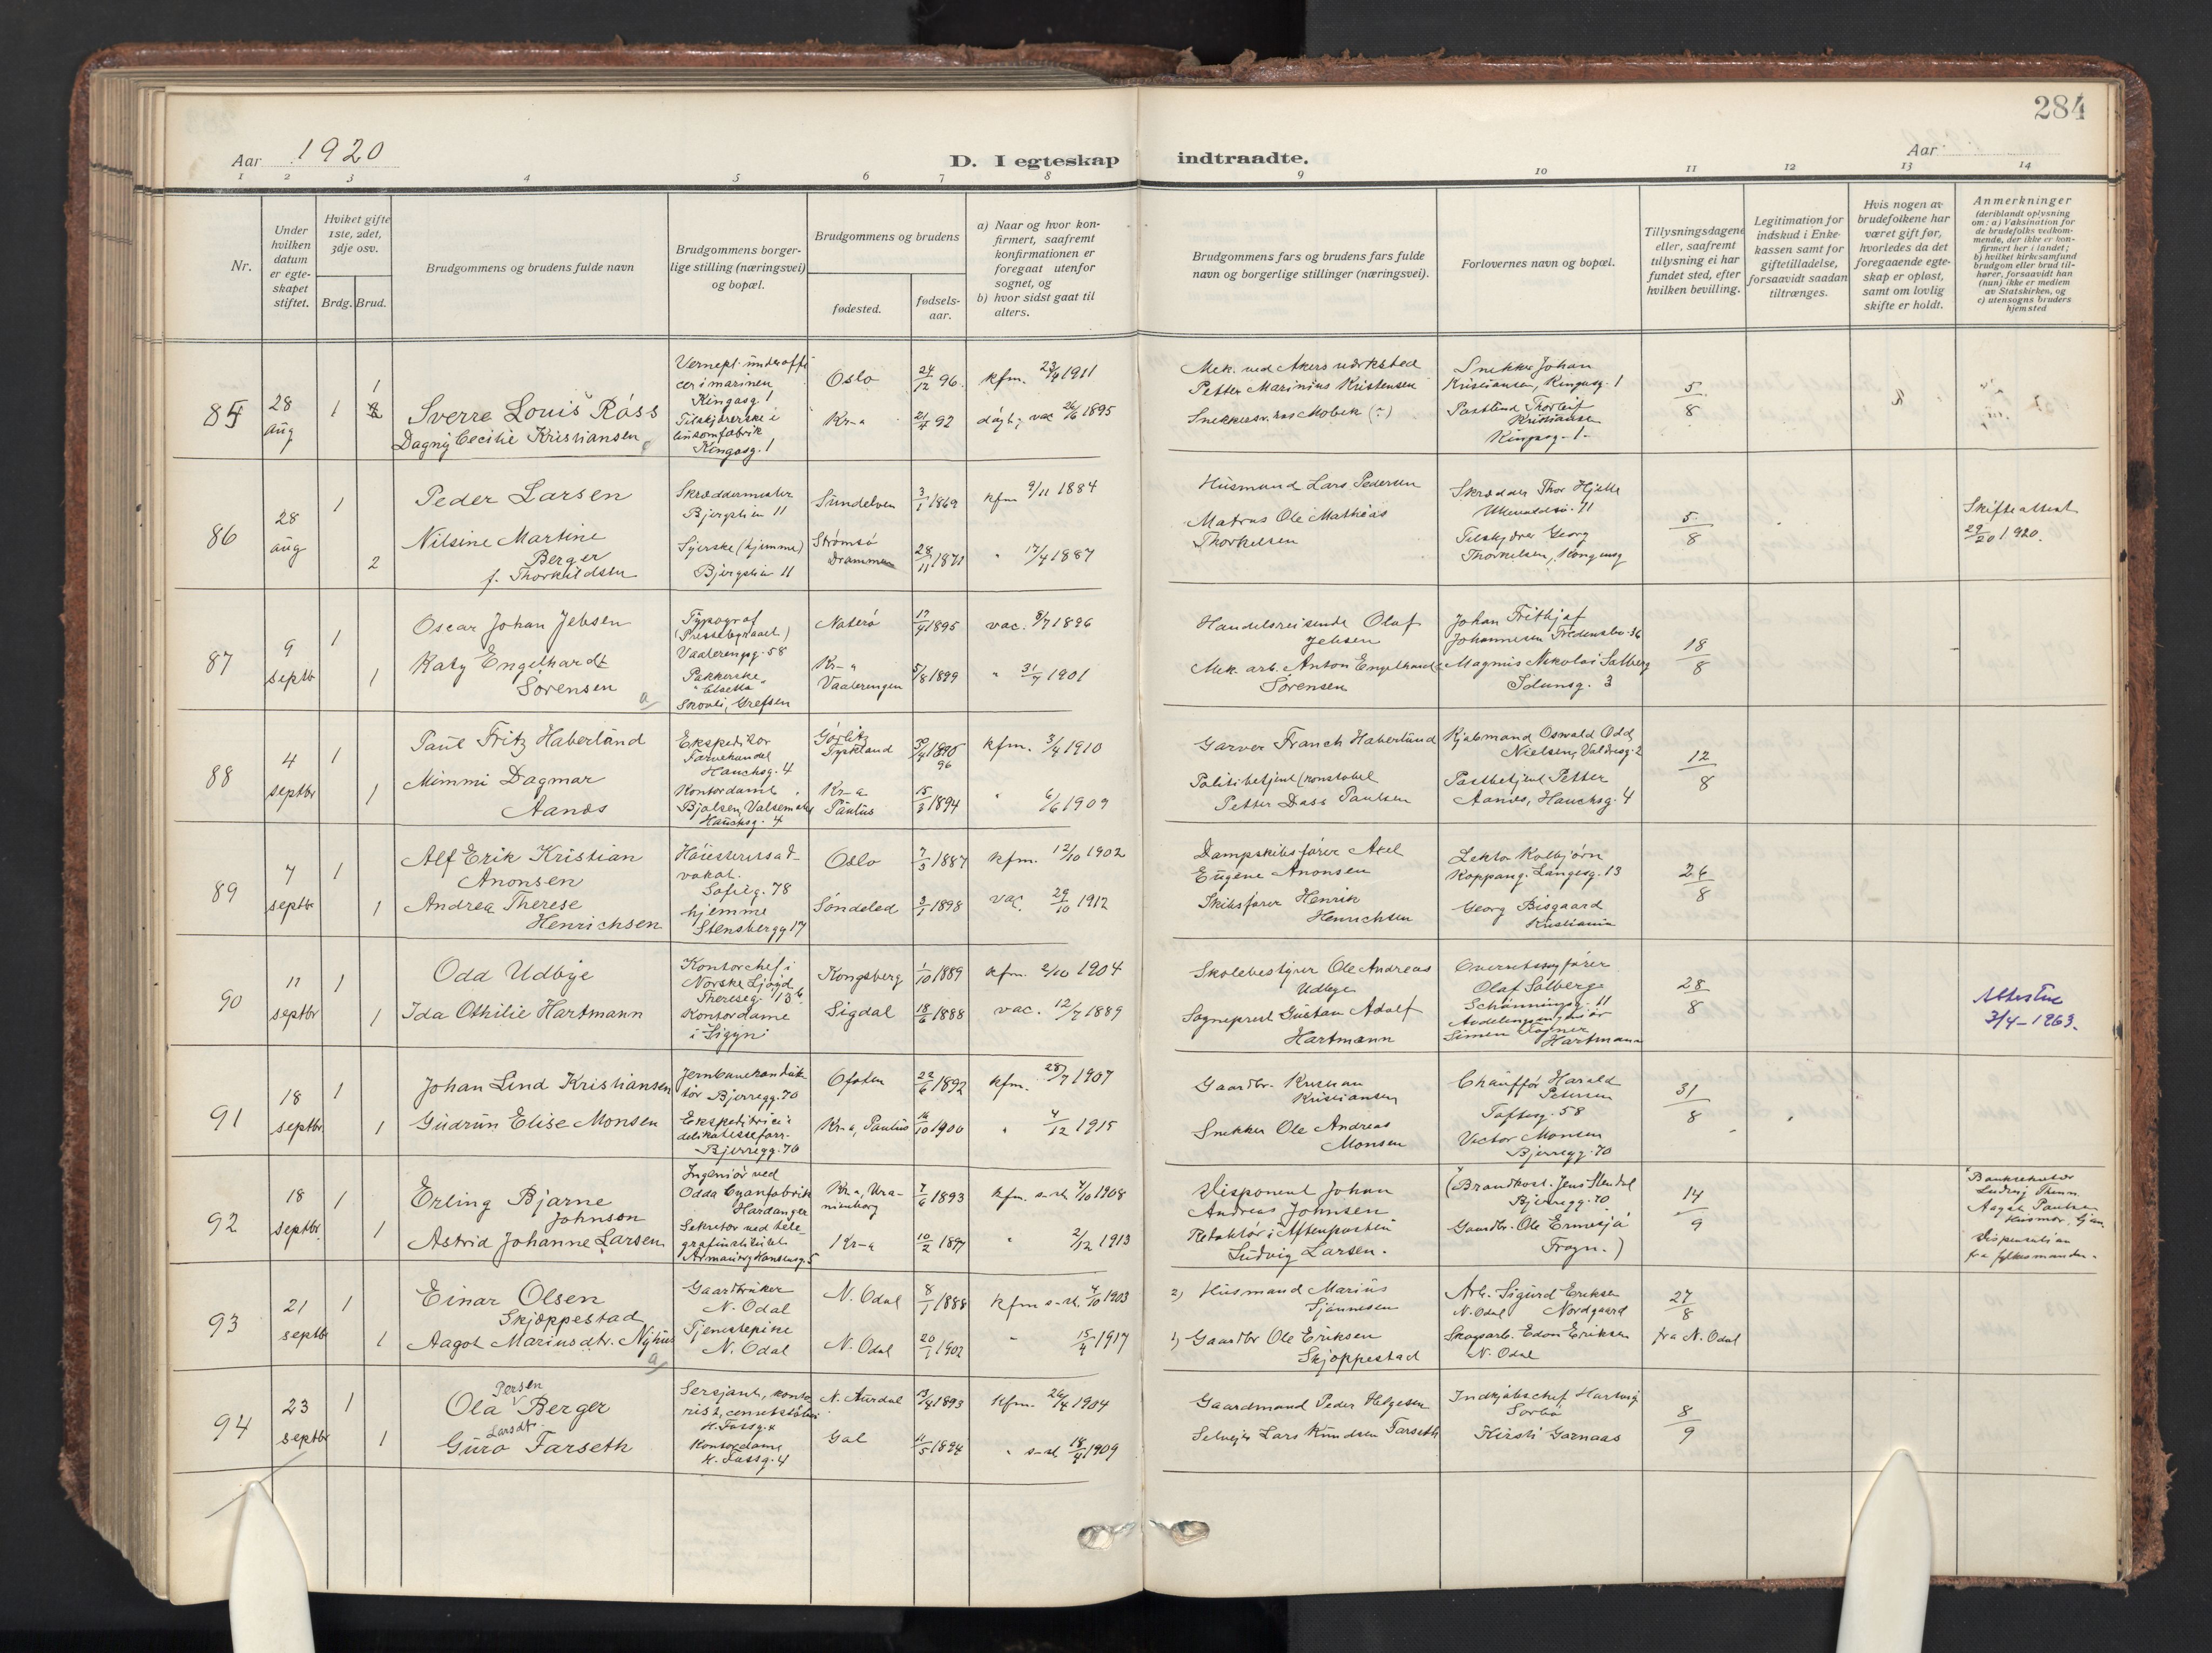 284
Aar 1920
D. I egteskap indtraadte.
Aar
1 2 3 4 5 6 7 8 9 10 11 12 13 14
Nr.
Under
hvilken
datum
er egte-
skapet
stiftet.
Hviket gifte
1ste, 2det,
3dje osv.
Brdg. Brud.
Brudgommens og brudens fulde navn
Brudgommens borger-
lige stilling (næringsvei)
og bopæl.
Brudgommens og brudens
fødested.
fødsels-
aar.
a) Naar og hvor kon-
firmert, saafremt
konfirmationen er
foregaat utenfor
sognet, og
b) hvor sidst gaat til
alters.
Brudgommens fars og brudens fars fulde
navn og borgerlige stillinger (næringsvei).
Forlovernes navn og bopæl.
Tillysningsdagene
eller, saafremt
tillysning ei har
fundet sted, efter
hvilken bevilling.
Legitimation for
indskud i Enke-
kassen samt for
giftetilladelse,
forsaavidt saadan
tiltrænges.
Hvis nogen av
brudefolkene har
været gift før,
hvorledes da det
foregaaende egte-
skap er opløst,
samt om lovlig
skifte er holdt.
Anmerkninger
(deriblandt oplysning
om: a) Vaksination for
de brudefolks vedkom-
mende, der ikke er kon-
firmert her i landet;
b) hvilket kirkesamfund
brudgom eller brud til-
hører, forsaavidt han
(hun) ikke er medlem
av Statskirken, og
c) utensogns bruders
hjemsted
85
28
aug
1
1
Sverre Louis Ross
Dagny Cecilie Kristiansen
Vernepl. underoffi
cer i marinen
Kingosg. 1
Tilskjærerske i
Kingosg. 1
Oslo
24/12 96.
kfm. 23/4 1911
Kr-a
21/4 92
1895
Mek. ved Akers værksted
Petter Marinius Kristensen
Snekker Johan
Kristiansen, Kingosg. 1
Thorleif
Kristiansen
Kingosg. 1
5/8
86
28
aug
1
2
Peder Larsen
Nilsine Martine
Berger
f. Thorkildsen
Skræddermester
Bjergslien 11
Syerske (hjemme)
Bjergslien 11
Sundelven
3/1 1869
kfm 9/11 1884
Strømsø
Drammen
28/11 1871
" 17/4 1887
Husmand Lars Pedersen
Matros Ole Mathias
Thorkelsen
Skrædder Thor Hjelle
Tilskjærer Georg
Thorkelsen,
5/8
Skifteattest
1920.
87
9
septbr
1
1
Oscar Johan Jebsen
Katy Engelhardt
Sørensen
a
Typograf
Vaalerengg. 58
Pakkerske
Grefsen
Nøterø
17/9 1895
vac. 8/7 1896
Kr-a
Vaalerengen
5/8 1899
" 31/7 1901
Handelsreisende Olaf
Jebsen
Mek. arb. Anton Engelhardt
Sørensen
Johan Frithjof
Johannesen Fredensbo. 36
Magnus Nikolai Salberg
Idunsg. 3
18/8
88
4
septbr
1
1
Paul Fritz Haberland
Mimmi Dagmar
Aanæs
Ekspeditør
Farvehandel
Hauchsg. 4
Kontordame
Bjølsen Valsemølle
Hauchsg. 4
Görlitz
Tyskland
1895
96
kfm. 3/4 1910
Kr-a
Paulus
15/3 1894
" 6/6 1909
Garver Franch Haberland
Politibetjent (konstabel
Petter Dass Paulsen
Kjøbmand Oswald Odd
Nielsen, Valdresg. 2
Postbetjent Petter
Aanæs, Hauchsg. 4
12/8
89
7
septbr
1
1
Alf Erik Kristian
Anonsen
Andrea Therese
Henrichsen
Høiesteretsad-
vokat.
Sofieg. 78
hjemme
Stensbergg 17
Oslo
7/3 1887
kfm. 12/10 1902
Søndeled
3/1 1898
vac. 29/10 1912
Dampskibsfører Axel
Eugene Anonsen
Skibsfører Henrik
Henrichsen
Lektor Kolbjørn
Koppang. Langesg. 13
Georg Bisgaard
Kristiania
26/8
90
11
septbr
1
1
Odd Udbye
Ida Othilie Hartmann
Kontorchef i
Norske Lloyd
Thereseg. 13 b
Kontordame
i Sigyn
Kongsberg
1/10 1889
kfm. 2/10 1904
Sigdal
18/6 1888
vac. 12/7 1889
Skolebestyrer Ole Andreas
Udbye
Sogneprest Gustav Adolf
Hartmann
Overretssagfører
Olaf Solberg
Schønningsg. 11
Avdelingsingeniør
Simen Fogner
Hartmann
28/8
Attest
3/4-1963.
91
18
septbr
1
1
Johan Lind Kristiansen
Gudrun Elise Monsen
Jernbanekonduk
tør Bjerregg. 70
Ekspeditrice i
delikatesseforr.
Bjerregg. 70
Ofoten
22/6 1892
kfm. 28/7 1907
Kr-a, Paulus
16/10 1900
" 4/12 1915
Gaardbr. Kristian
Kristiansen
Snekker Ole Andreas
Monsen
Chauffør Harald
Petersen
Toftesg. 58
Victor Monsen
Bjerregg. 70
31/8
92
18
septbr
1
1
Erling Bjarne
Johnson
Astrid Johanne Larsen
Ingeniør ved
Odda Cyanfabrik
Hardanger
Sekretær ved tele-
Armauer Hansensg. 5
Kr-a, Ura-
nienborg
7/6 1893
kfm. 4/10 1908
Kr-a
10/2 1897
" 2/12 1913
Disponent Johan
Andreas Johnsen
Redaktør i Aftenposten
Ludvig Larsen.
(Brandkonst. Jens Slendal
Bjerregg. 70
Gaardbr. Ole Ermesjø
Frogn.)
14/9
Banksekretær
Ludvig Thenn.
Aagot Paulsen
Dispensation
fra fylkesmanden.
93
21
septbr
1
1
Einar Olsen
Skjøppestad
Aagot Mariusdtr. Nyhus
a
Gaardbruker
N. Odal
Tjenestepike
N. Odal
N. Odal
8/1 1888
kfm 4/10 1903
N. Odal
20/1 1902
" 15/4 1917
2) Husmand Marius
1) Gaardbr Ole Eriksen
Skjøppestad
Arb. Sigurd Eriksen
N. Odal Nordgaard
Skogsarb. Edon Eriksen
N. Odal
27/8
fra N. Odal
94
23
septbr
1
1
Persen
Ola Berger
Larsdtr.
Guro Farseth
Sersjant, konto
H. Fossg. 4
Kontordame
H. Fossg. 4
N. Aurdal
13/4 1893
kfm. 26/4 1904
Gol
11/5 1894
" 18/4 1909
Gaardmand Peder Helgesen
Selveier Lars Knudsen Farseth
Indkjøpschef Hartvig
Sørbø
Kirsti Garnaas
8/9